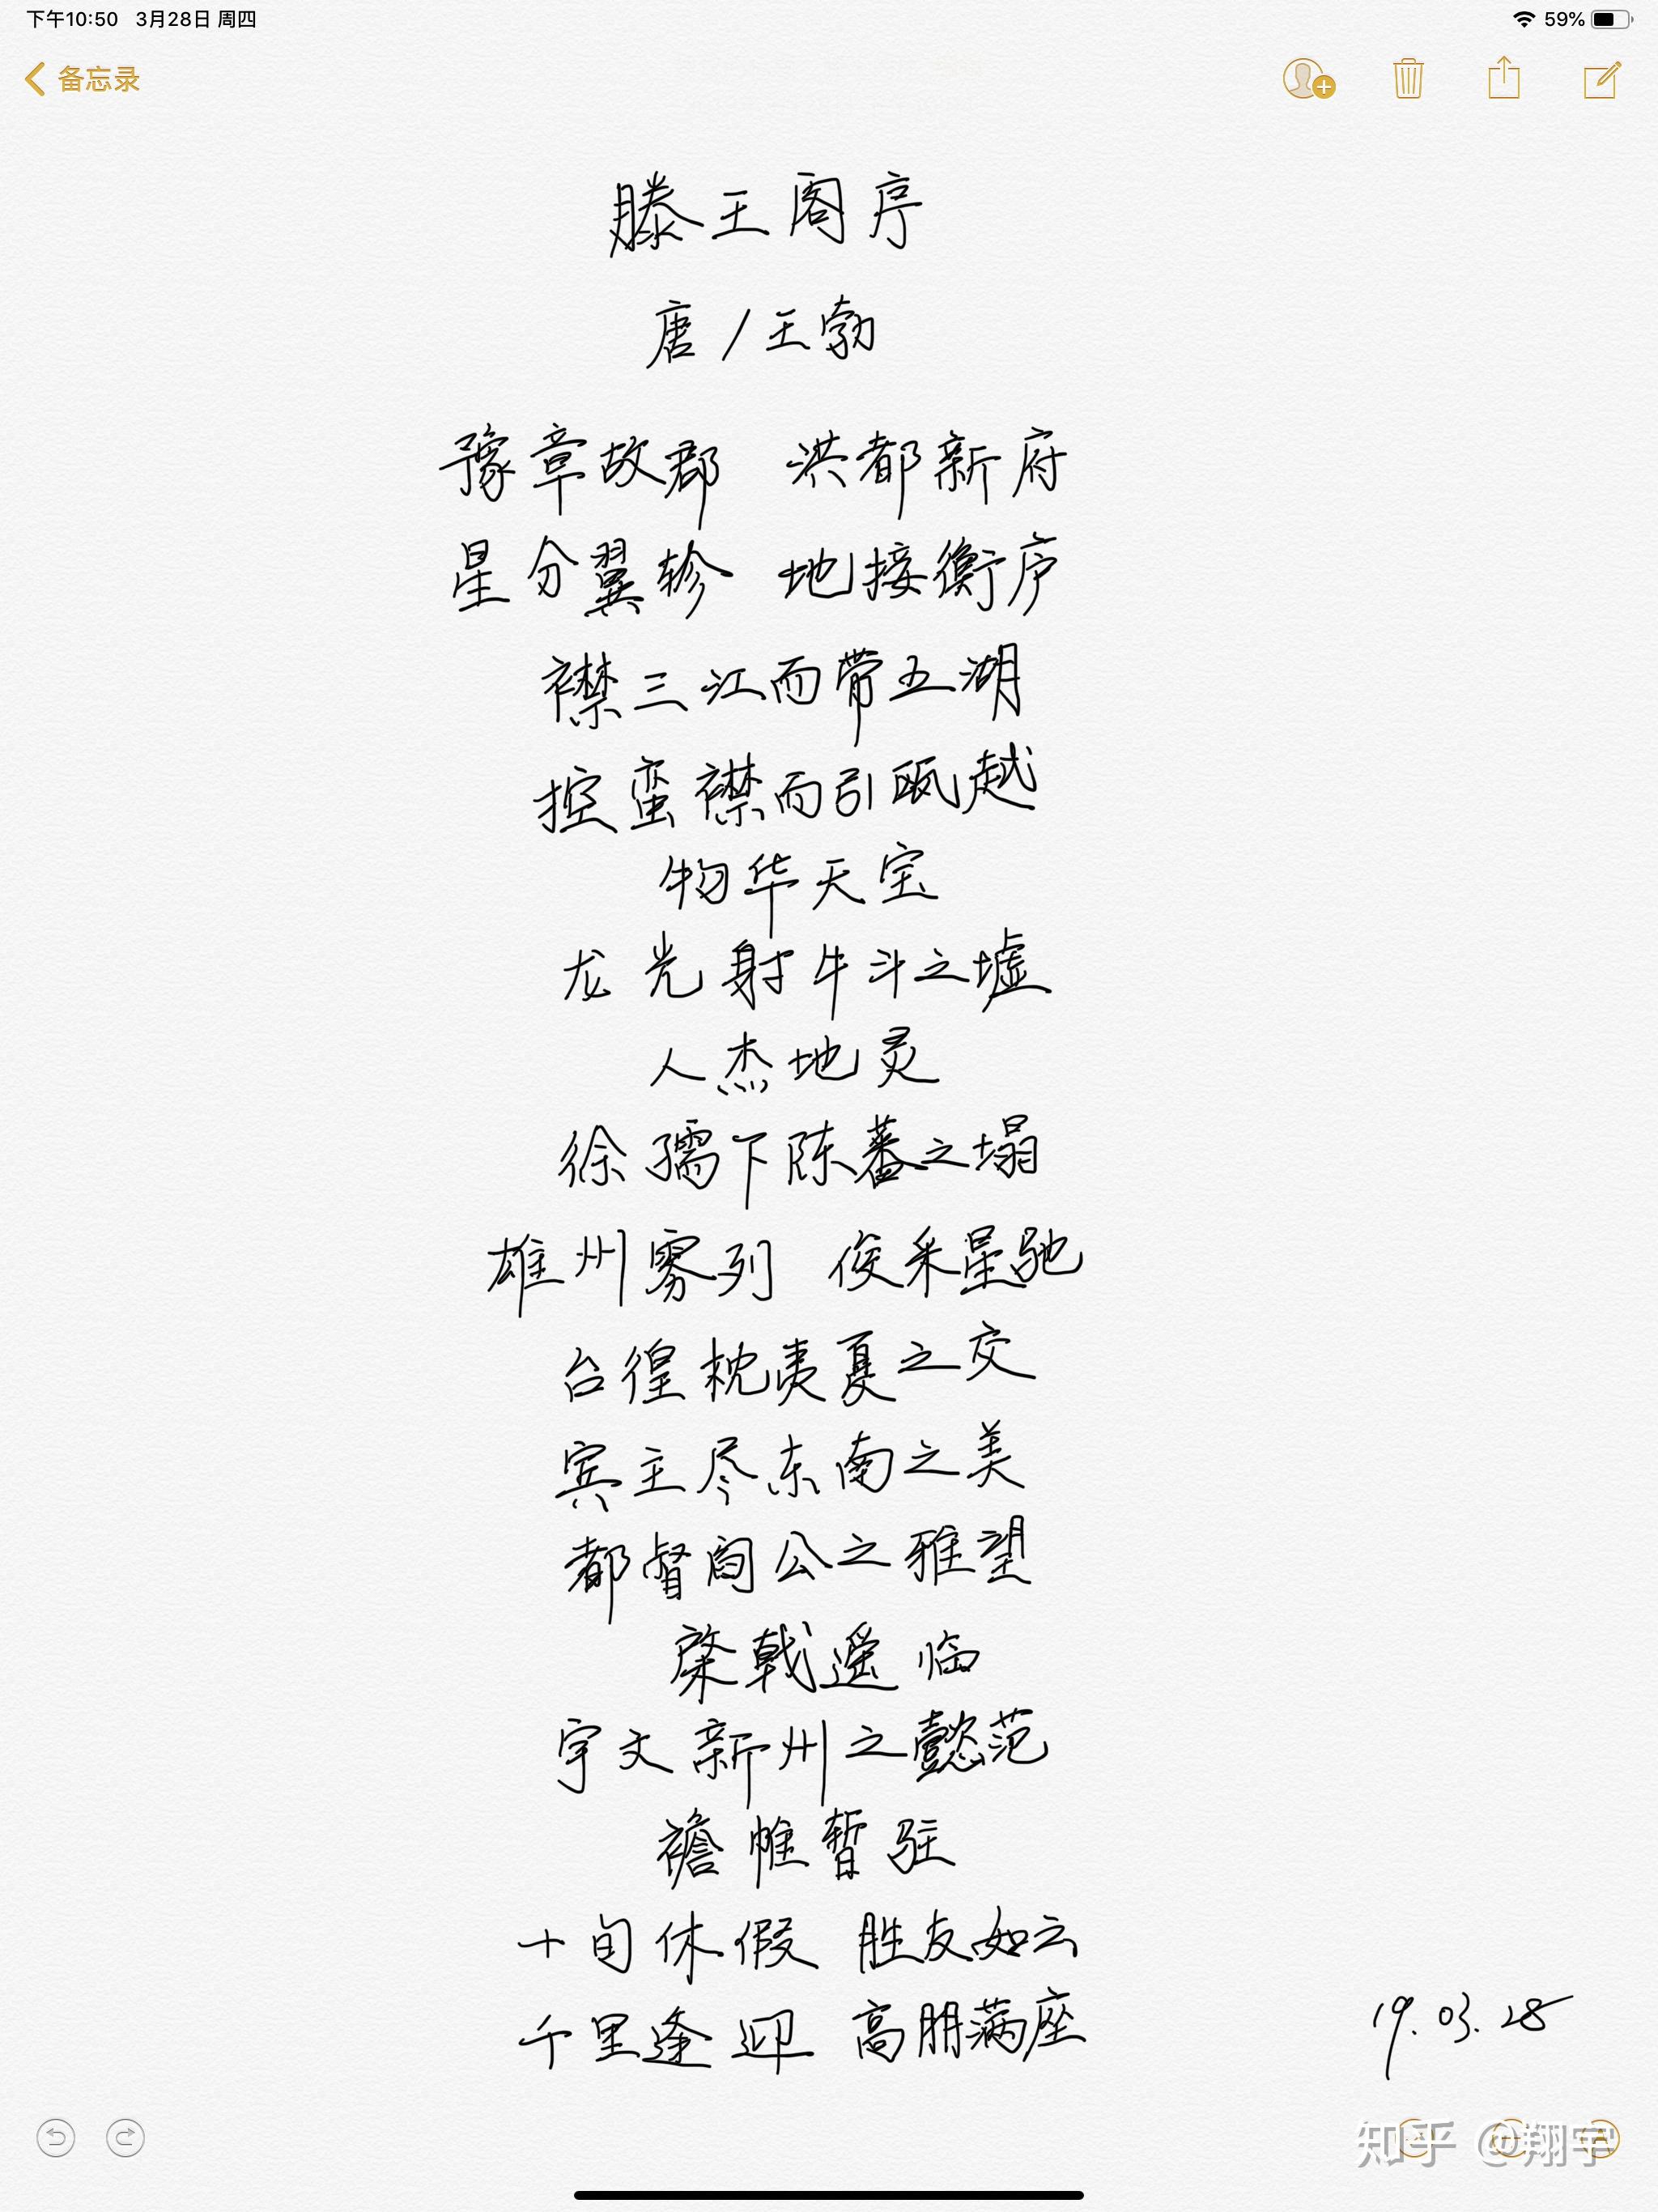 下午10:50 3月28日 周四 59%
备忘录
滕王阁序
唐/王勃
豫章故郡 洪都新府
星分翼轸 地接衡庐
襟三江而带五湖
控蛮襟而引瓯越
物华天宝
龙光射牛斗之墟
人杰地灵
徐孺下陈蕃之塌
雄州雾列 俊采星驰
台徨枕夷夏之交
宾主尽东南之美
都督阎公之雅望
棨戟遥临
宇文新州之懿范
襜帷暂驻
十旬休假 胜友如云
千里逢迎 高朋满座
19.03.28
知乎 @翔宇